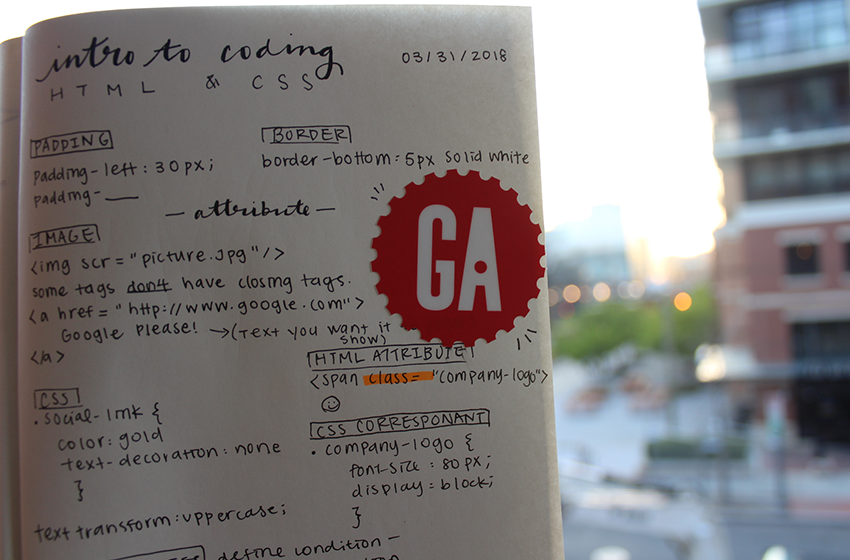 intro to coding
03/31/2018
HTML & CSS
PADDING
padding-left: 30px;
padding-
BORDER
border-bottom: 5px solid white
— attribute —
IMAGE
<img scr="picture.jpg"/>
some tags don't have closing tags.
<a href="http://www.google.com">
Google please! →(Text you want it
show)
</a>
GA
HTML ATTRIBUTE
<span class="company-logo">
CSS
.social-link {
color: gold
text-decoration: none
}
text transform: uppercase;
CSS CORRESPONANT
.company-logo {
font-size: 80px;
display: block;
}
define condition —